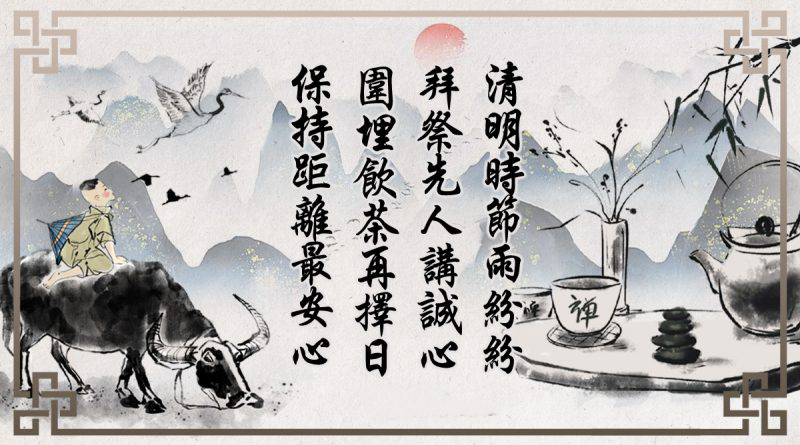 清明時節雨紛紛
拜祭先人講誠心
圍埋飲茶再擇日
保持距離最安心
禪